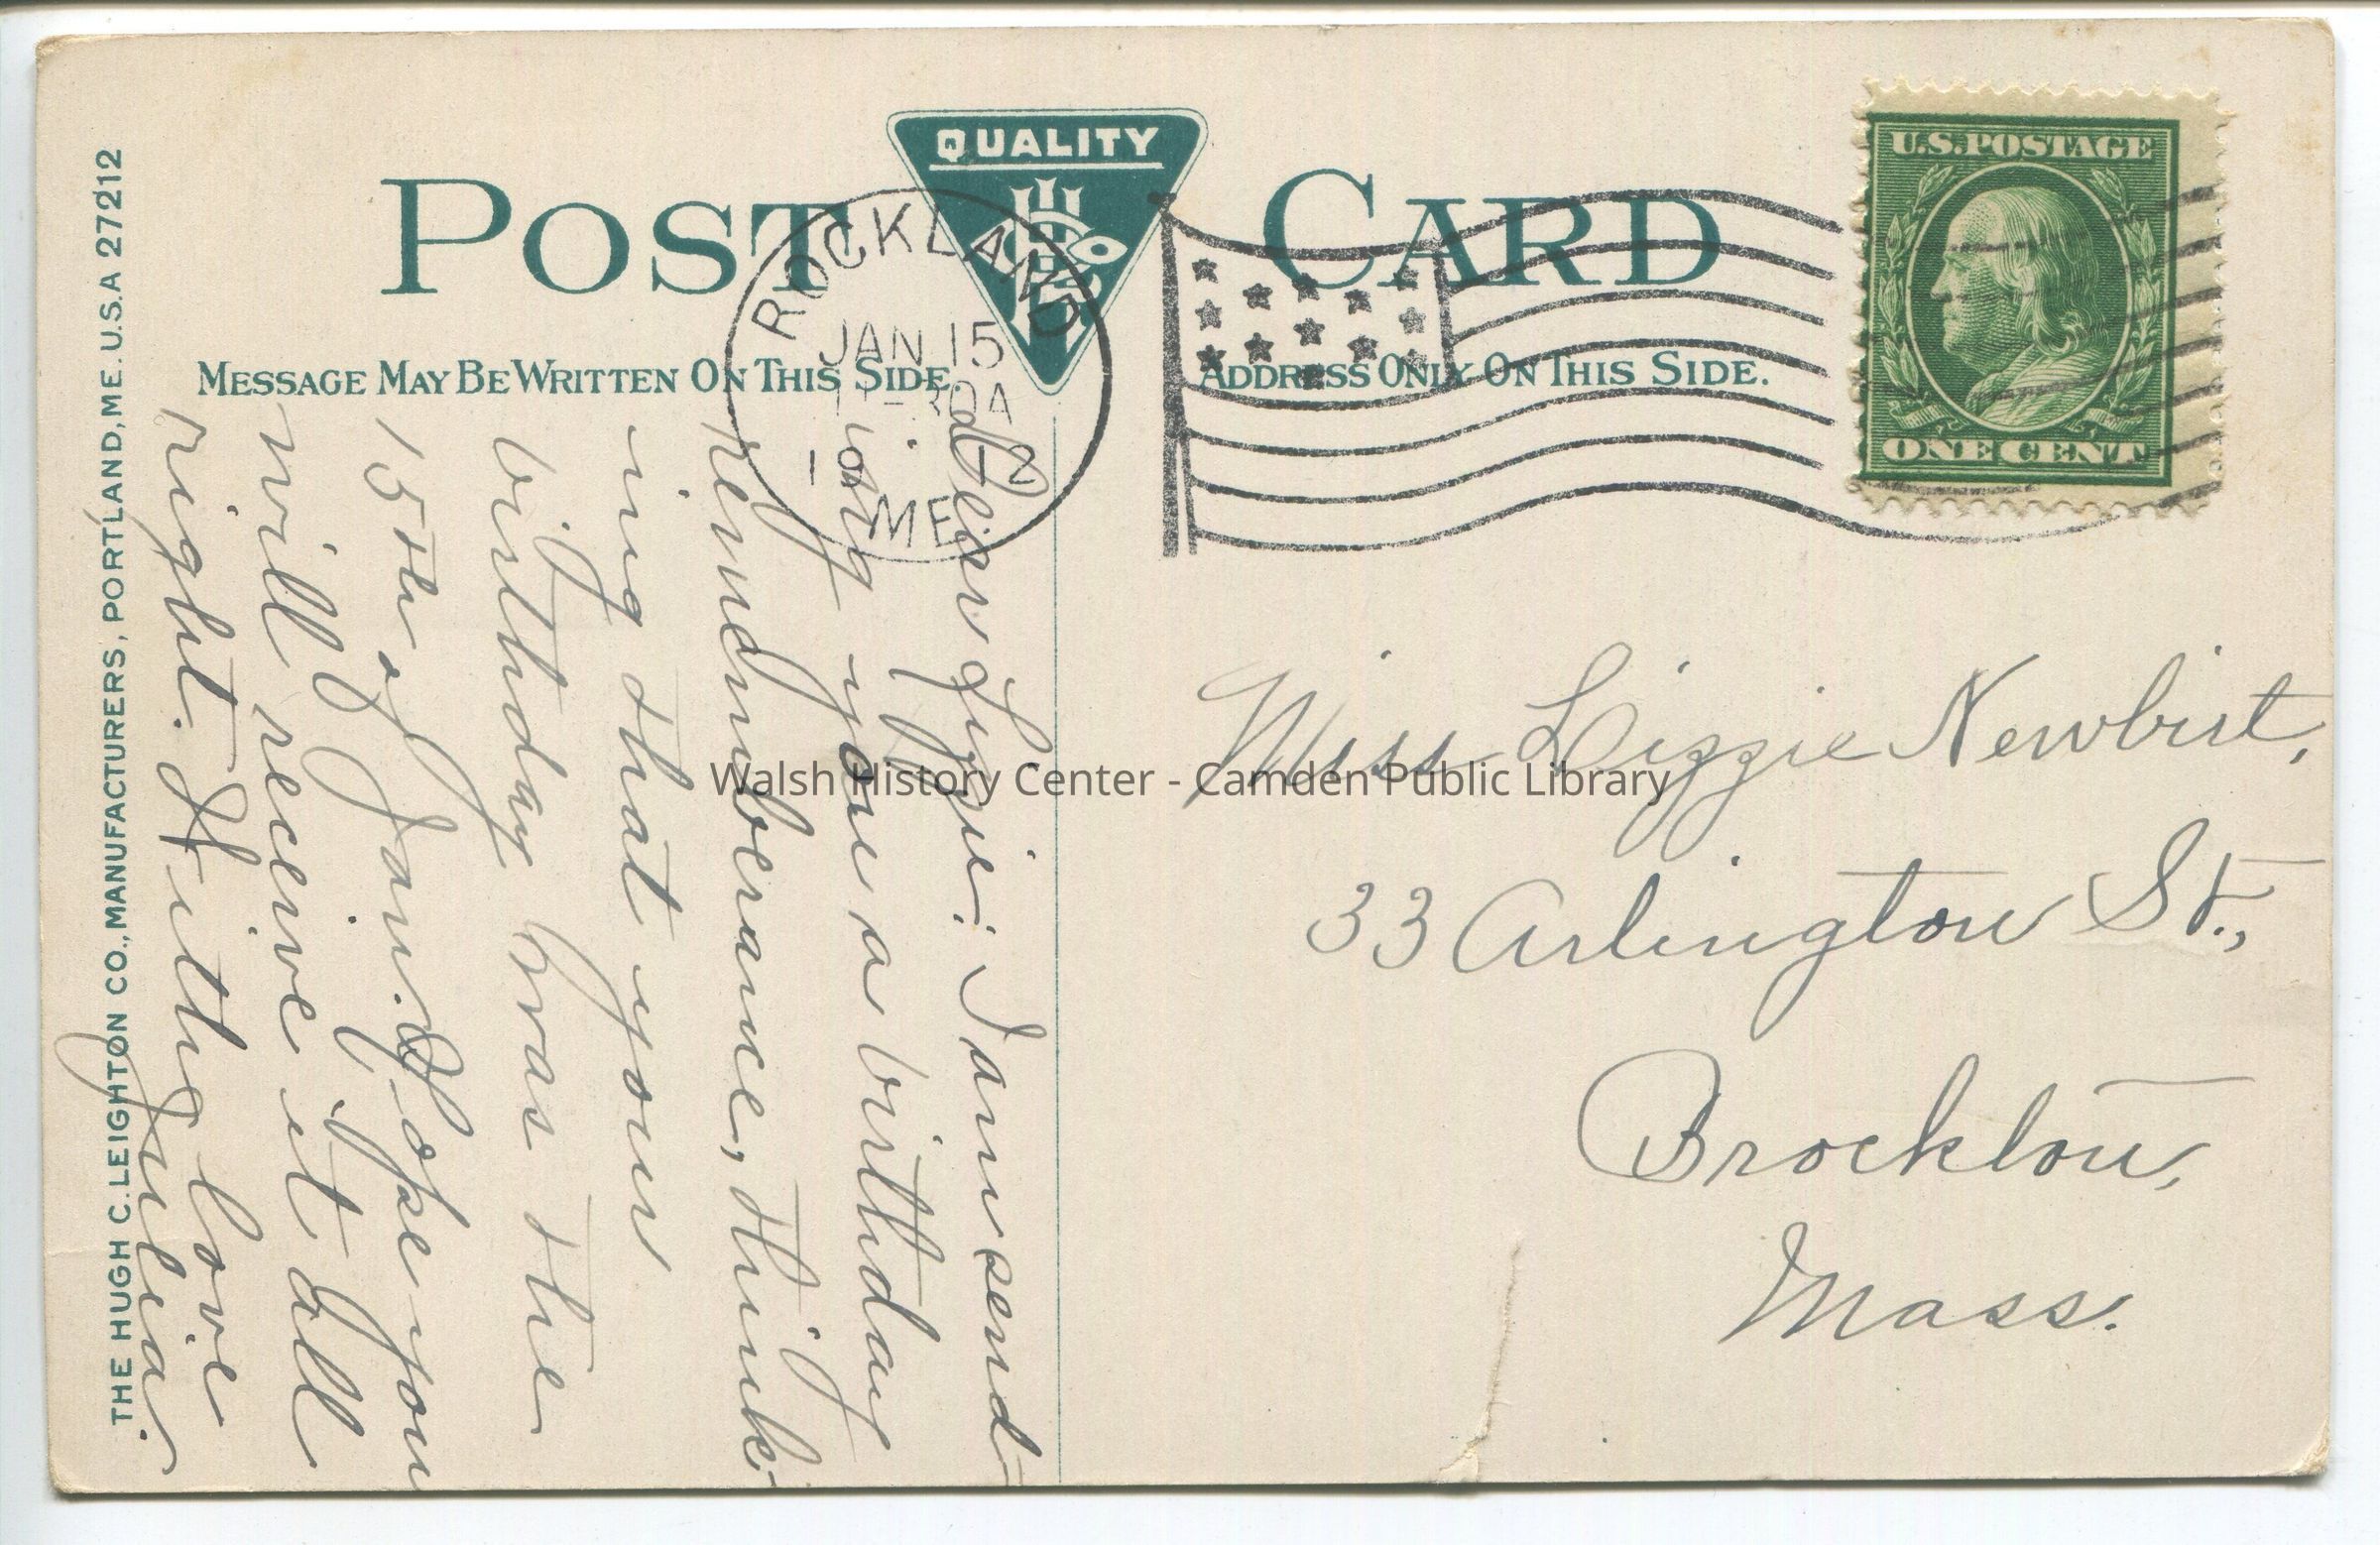 POST CARD
QUALITY
MESSAGE MAY BE WRITTEN ON THIS SIDE.
ADDRESS ONLY ON THIS SIDE.
U.S. POSTAGE
ONE CENT
ROCKLAND
JAN 15
30A
ME
THE HUGH C. LEIGHTON CO., MANUFACTURERS, PORTLAND, ME. U.S.A 27212
Dear Lizzie: I am send-
ing you a birthday
remdmberance, think-
ing that your
birthday was the
15th of Jan. Hope you
will receive it all
right. With love
Julia.
Miss Lizzie Newbirt,
33 Arlington St.,
Brockton,
Mass.
Walsh History Center - Camden Public Library